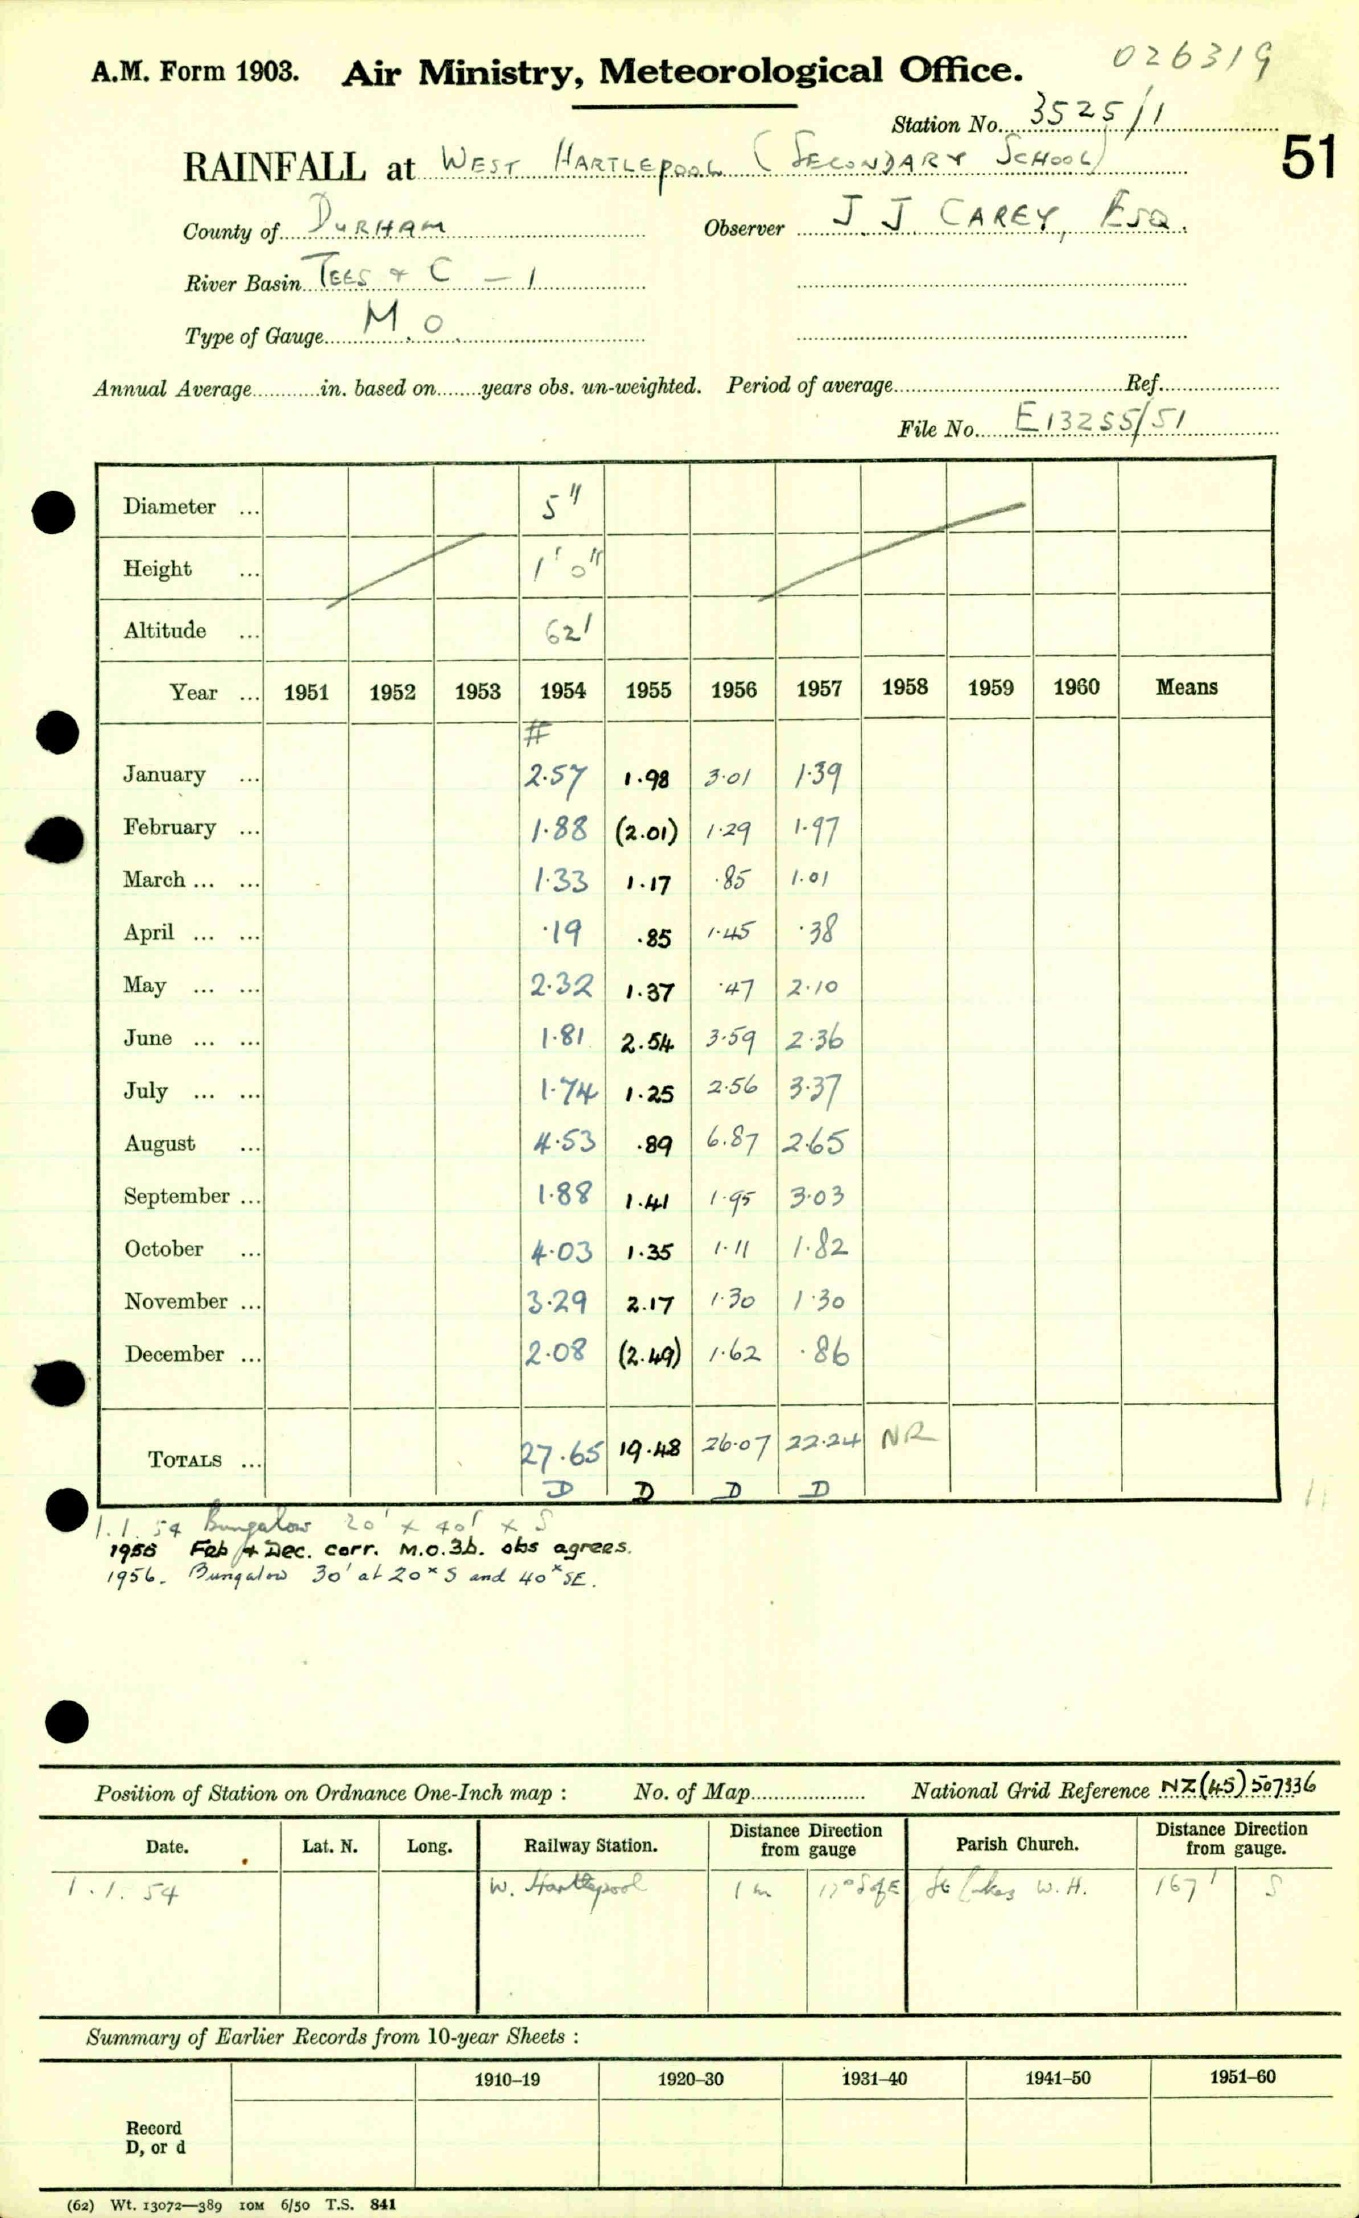 026319
A.M. Form 1903. Air Ministry, Meteorological Office.
Station No. 3525/1
51
RAINFALL at WEST HARTLEPOOL (SECONDARY SCHOOL)
County of DURHAM Observer J J CAREY, ESQ.
River Basin TEES & C - 1
Type of Gauge M.O.
Annual Average in. based on years obs. un-weighted. Period of average Ref.
File No. E13255/51
Diameter ... 5"
Height ... 1' 0"
Altitude ... 62'
Year ... 1951 1952 1953 1954 1955 1956 1957 1958 1959 1960 Means
#
January ... 2.57 1.98 3.01 1.39
February ... 1.88 (2.01) 1.29 1.97
March ... ... 1.33 1.17 .85 1.01
April ... ... .19 .85 1.45 .38
May ... ... 2.32 1.37 .47 2.10
June ... ... 1.81 2.54 3.59 2.36
July ... ... 1.74 1.25 2.56 3.37
August ... 4.53 .89 6.87 2.65
September ... 1.88 1.41 1.95 3.03
October ... 4.03 1.35 1.11 1.82
November ... 3.29 2.17 1.30 1.30
December ... 2.08 (2.49) 1.62 .86
TOTALS ... 27.65 19.48 26.07 22.24 NR
D D D D
1.1.54 Bungalow 20' x 40' x S
1955 Feb + Dec. corr. M.O.3b. obs agrees.
1956. Bungalow 30' at 20x S and 40x SE.
Position of Station on Ordnance One-Inch map : No. of Map National Grid Reference NZ(45)507336
Date. Lat. N. Long. Railway Station. Distance from Direction gauge Parish Church. Distance from Direction gauge.
1.1.54 W. Hartlepool 1 m 17° S of E St Lukes W.H. 167' S
Summary of Earlier Records from 10-year Sheets :
1910–19 1920–30 1931–40 1941–50 1951–60
Record
D, or d
(62) Wt. 13072—389 10M 6/50 T.S. 841